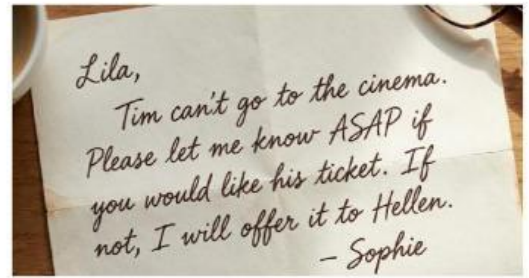 Lila,
Tim can't go to the cinema.
Please let me know ASAP if
you would like his ticket. If
not, I will offer it to Hellen.
– Sophie